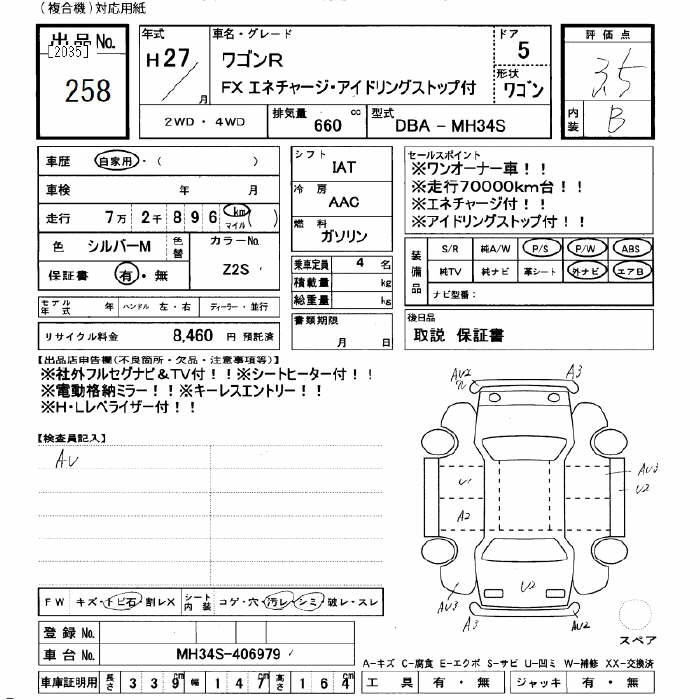 (複合機)対応用紙
出品No.
[2035]
258
年式
H27/
月
車名・グレード
ワゴンR
FX エネチャージ・アイドリングストップ付
ドア
5
形状
ワゴン
2WD ・ 4WD
排気量 660 cc
型式 DBA - MH34S
評価点
3.5
内装 B
車歴 自家用・( )
車検 年 月
走行 7万 2千 8 9 6 km マイル ( )
色 シルバーM 色替
カラーNo.
Z2S
保証書 有・無
モデル年式 年 ハンドル 左・右 ディーラー・並行
リサイクル料金 8,460 円 預託済
シフト
IAT
冷房
AAC
燃料
ガソリン
乗車定員 4 名
積載量 kg
総重量 kg
書類期限
月 日
セールスポイント
※ワンオーナー車!!
※走行70000km台!!
※エネチャージ付!!
※アイドリングストップ付!!
装備品
S/R 純A/W P/S P/W ABS
純TV 純ナビ 革シート 外ナビ エアB
ナビ型番:
後日品
取説 保証書
【出品店申告欄(不良箇所・欠品・注意事項等)】
※社外フルセグナビ&TV付!!※シートヒーター付!!
※電動格納ミラー!!※キーレスエントリー!!
※H・Lレベライザー付!!
【検査員記入】
AU
AU2
A3
U1
A2
AU3
U2
U2
AU3
A3
AU2
スペア
FW キズ・トビ石・割レX
シート内装 コゲ・穴・汚レ・シミ・破レ・スレ
登録No.
車台No. MH34S-406979
車庫証明用 長さ 3 3 9 cm 幅 1 4 7 cm 高さ 1 6 4 cm
A-キズ C-腐食 E-エクボ S-サビ U-凹ミ W-補修 XX-交換済
工具 有・無 ジャッキ 有・無